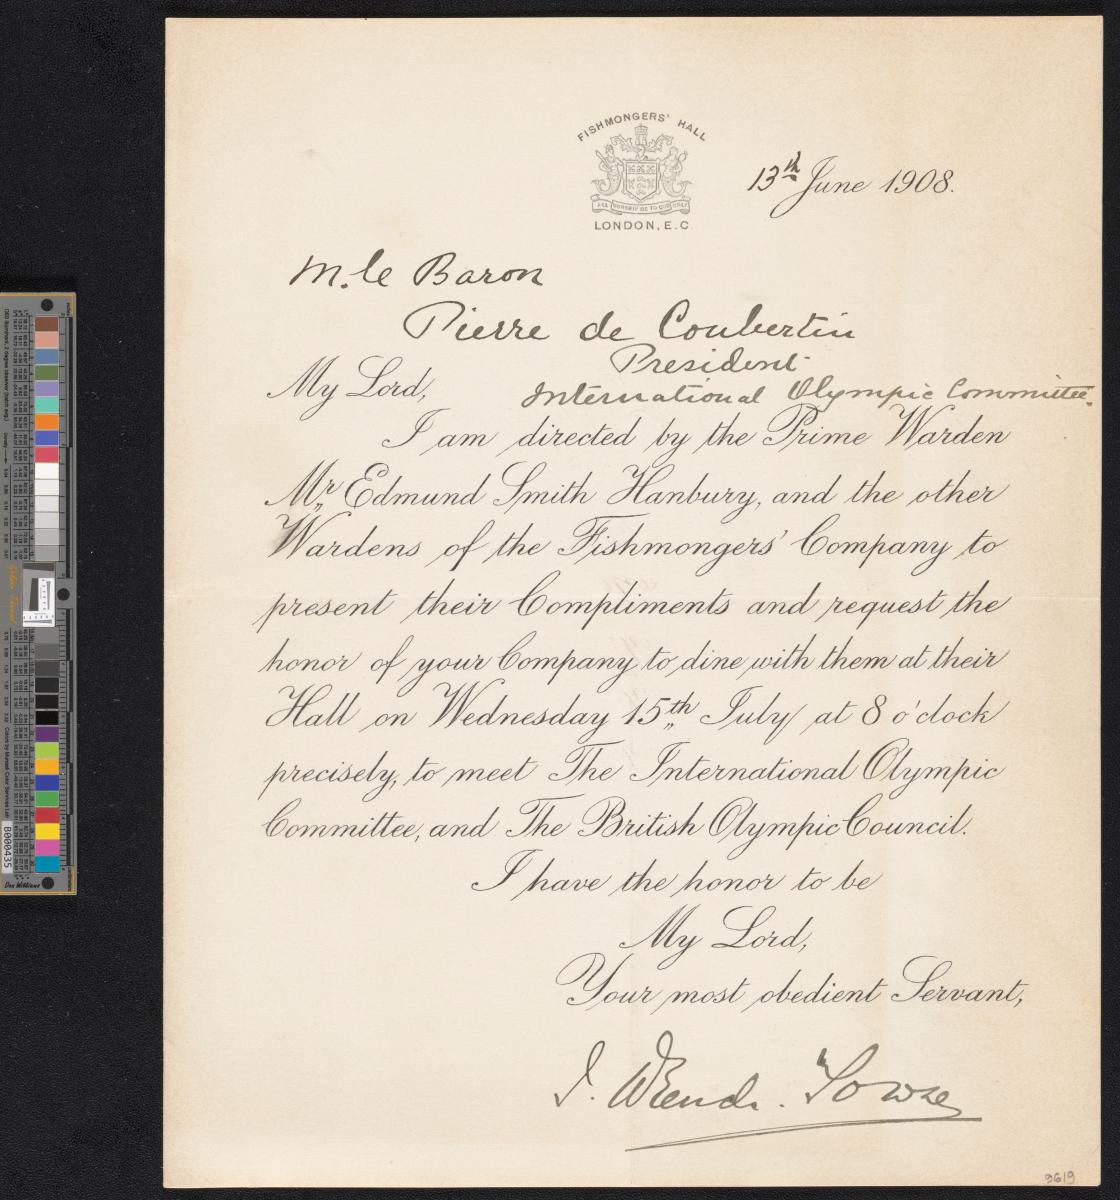 FISHMONGERS' HALL
LONDON, E.C.
13th June 1908.
M. le Baron
Pierre de Coubertin
President
International Olympic Committee.
My Lord,
I am directed by the Prime Warden
Mr Edmund Smith Hanbury, and the other
Wardens of the Fishmongers' Company to
present their Compliments and request the
honor of your Company to dine with them at their
Hall on Wednesday 15th July at 8 o'clock
precisely, to meet The International Olympic
Committee, and The British Olympic Council.
I have the honor to be
My Lord,
Your most obedient Servant,
J. Wrench Towse
9619
Golden Thread
B000435
Don Williams